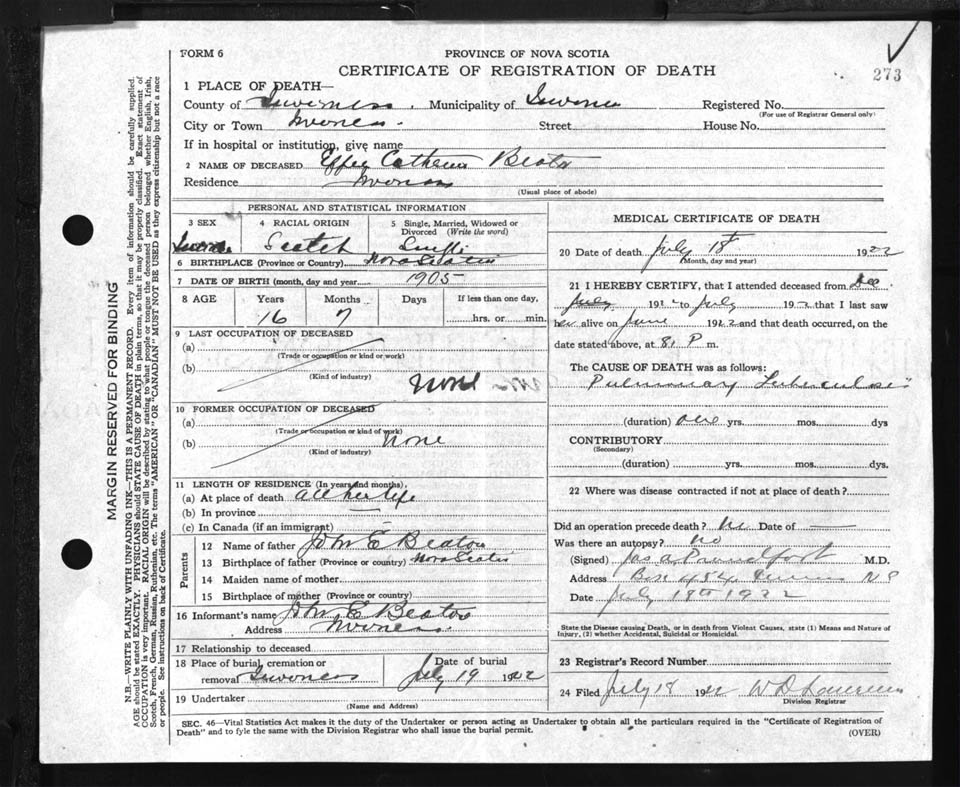 FORM 6
PROVINCE OF NOVA SCOTIA
CERTIFICATE OF REGISTRATION OF DEATH
273
MARGIN RESERVED FOR BINDING
N.B.—WRITE PLAINLY WITH UNFADING INK—THIS IS A PERMANENT RECORD. Every item of information should be carefully supplied.
AGE should be stated EXACTLY. PHYSICIANS should STATE CAUSE OF DEATH in plain terms, so that it may be properly classified. Exact statement of
OCCUPATION is very important. RACIAL ORIGIN will be described by stating to what people or tongue the deceased person belonged whether English, Irish,
Scotch, French, German, Russian, Ruthenian, etc. The terms "AMERICAN" OR "CANADIAN" MUST NOT BE USED as they express citizenship but not a race
or people. See instructions on back of Certificate.
1 PLACE OF DEATH—
County of Inverness. Municipality of Inverness Registered No.
(For use of Registrar General only)
City or Town Inverness. Street House No.
If in hospital or institution, give name
2 NAME OF DECEASED Effey Catherin Beaton
Residence Inverness
(Usual place of abode)
PERSONAL AND STATISTICAL INFORMATION
3 SEX 4 RACIAL ORIGIN 5 Single, Married, Widowed or
Divorced (Write the word)
Scotch
6 BIRTHPLACE (Province or Country) Nova Scotia
7 DATE OF BIRTH (month, day and year) 1905
8 AGE Years Months Days If less than one day,
16 7 hrs. or min.
9 LAST OCCUPATION OF DECEASED
(a)
(Trade or occupation or kind or work)
(b)
(Kind of industry)
None
10 FORMER OCCUPATION OF DECEASED
(a)
(Trade or occupation or kind of work)
(b) None
(Kind of industry)
11 LENGTH OF RESIDENCE (In years and months)
(a) At place of death all her life
(b) In province
(c) In Canada (if an immigrant)
Parents
12 Name of father John E Beaton
13 Birthplace of father (Province or country) Nova Scotia
14 Maiden name of mother
15 Birthplace of mother (Province or country)
16 Informant's name John E Beaton
Address Inverness.
17 Relationship to deceased
18 Place of burial, cremation or Date of burial
removal Inverness July 19 1922
19 Undertaker
(Name and Address)
MEDICAL CERTIFICATE OF DEATH
20 Date of death July 18th 1922
(Month, day and year)
21 I HEREBY CERTIFY, that I attended deceased from Dec
July 192 to July 192 that I last saw
her alive on June 1922 and that death occurred, on the
date stated above, at 8. P m.
The CAUSE OF DEATH was as follows:
Pulmonary Tuberculosis
(duration) one yrs. mos. dys
CONTRIBUTORY
(Secondary)
(duration) yrs. mos. dys.
22 Where was disease contracted if not at place of death?
Did an operation precede death? No Date of —
Was there an autopsy? no
(Signed) M.D.
Address Box 454 Inverness N S
Date July 18th 1922
State the Disease causing Death, or in death from Violent Causes, state (1) Means and Nature of
Injury, (2) whether Accidental, Suicidal or Homicidal.
23 Registrar's Record Number
24 Filed July 18 1922 W D Lawrence
Division Registrar
SEC. 46—Vital Statistics Act makes it the duty of the Undertaker or person acting as Undertaker to obtain all the particulars required in the "Certificate of Registration of
Death" and to fyle the same with the Division Registrar who shall issue the burial permit.
(OVER)